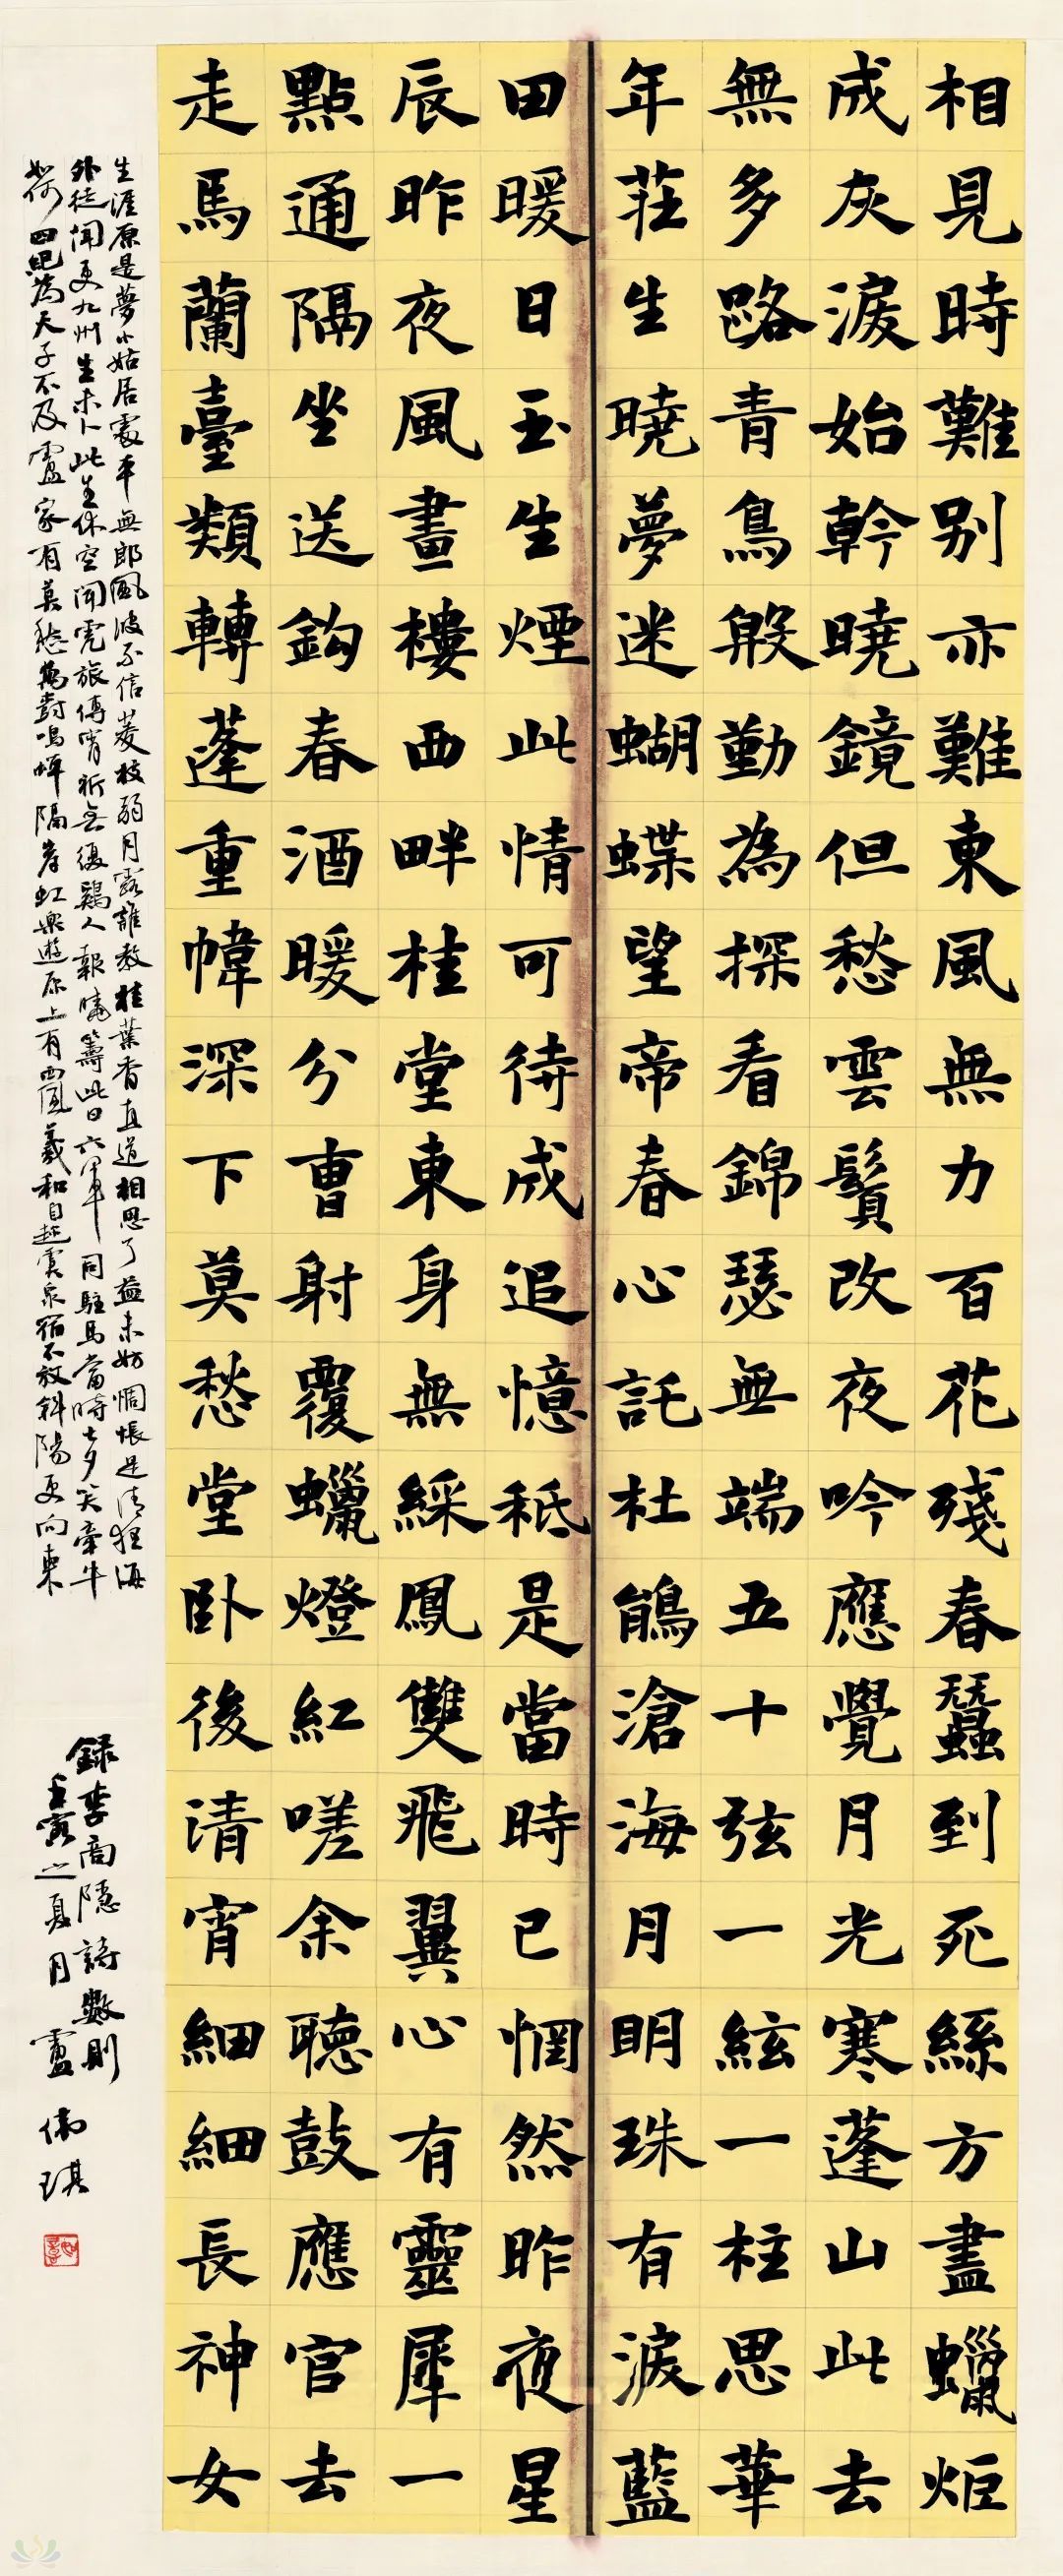 相見時難别亦難東風無力百花殘春蠶到死絲方盡蠟炬
成灰淚始幹曉鏡但愁雲鬢改夜吟應覺月光寒蓬山此去
無多路青鳥殷勤為探看錦瑟無端五十弦一絃一柱思華
年莊生曉夢迷蝴蝶望帝春心託杜鵑滄海月明珠有淚藍
田暖日玉生煙此情可待成追憶秪是當時已惘然昨夜星
辰昨夜風畫樓西畔桂堂東身無綵鳳雙飛翼心有靈犀一
點通隔坐送鈎春酒暖分曹射覆蠟燈紅嗟余聽鼓應官去
走馬蘭臺類轉蓬重幃深下莫愁堂卧後清宵細細長神女
生涯原是夢小姑居處本無郎風波不信菱枝弱月露誰教桂葉香直道相思了益未妨惆悵是清狂海
外徒聞更九州生未卜此生休空聞虎旅傳宵柝無復鷄人報曉籌此日六軍同駐馬當時七夕笑牽牛
如何四紀為天子不及盧家有莫愁萬樹鳴蟬隔岸虹樂遊原上有西風羲和自趁虞泉宿不放斜陽更向東
錄李商隱詩數則
壬寅之夏月盧偉琪